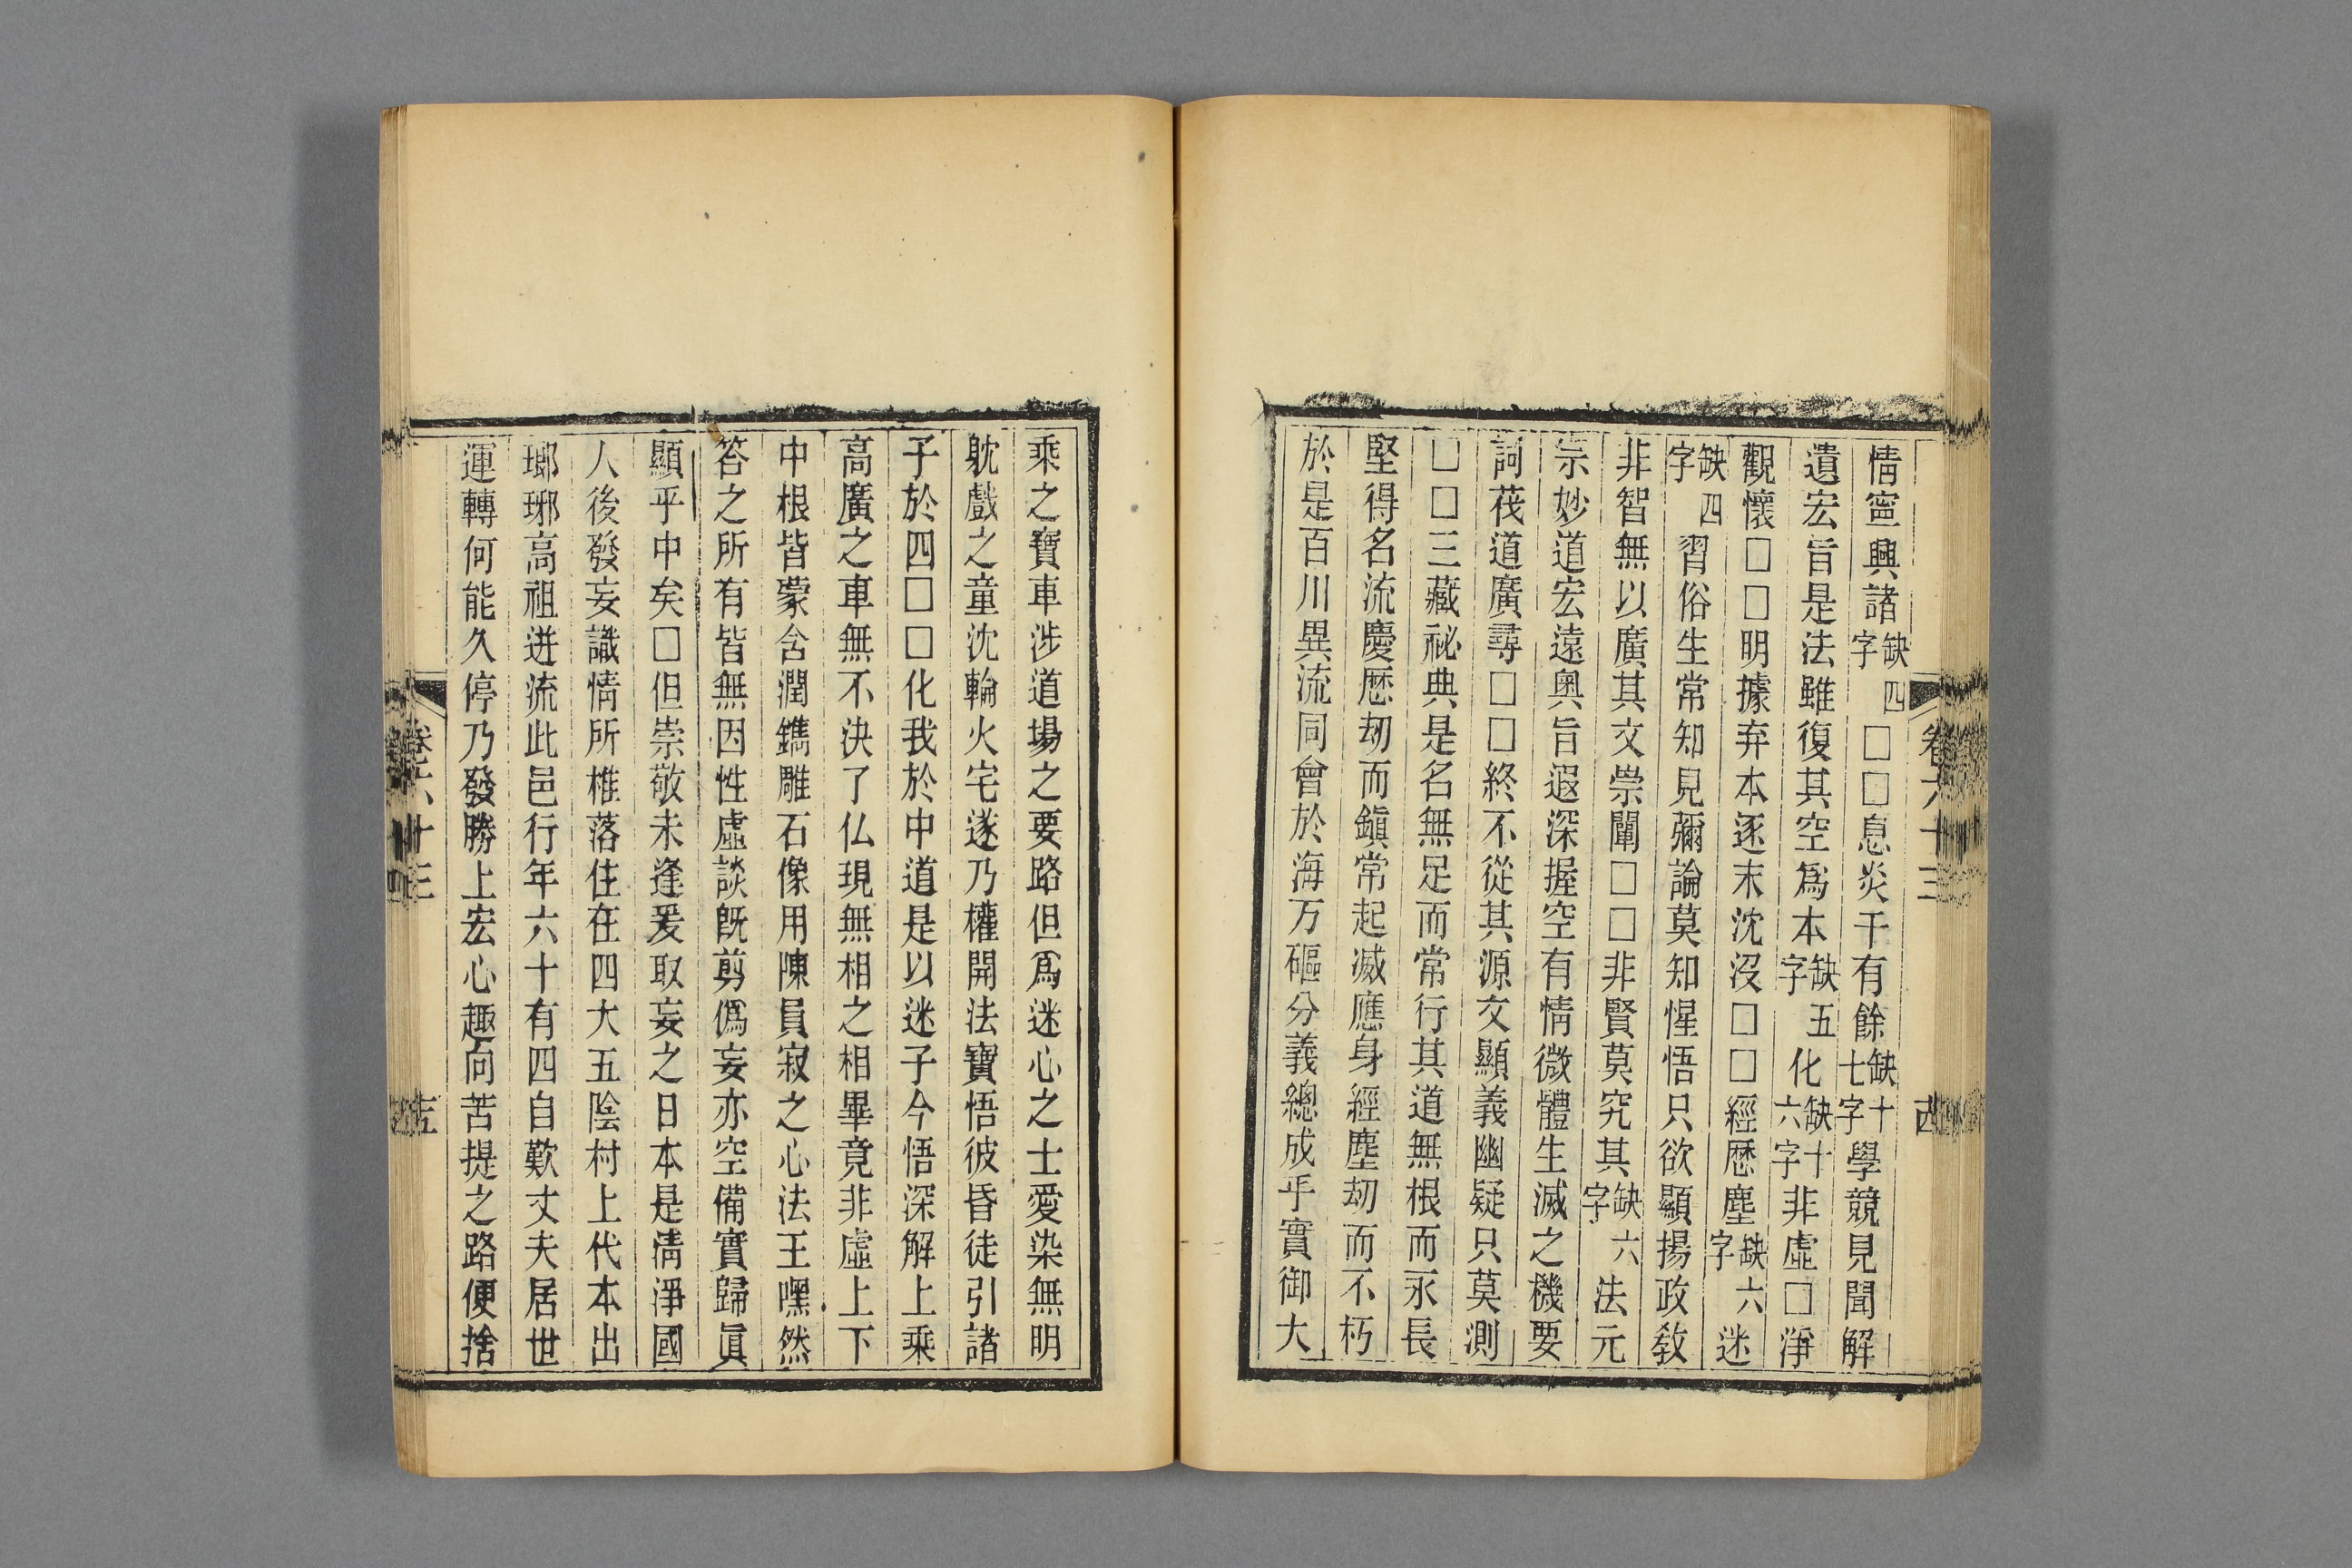 卷六十三
情寧興諸缺四字□□息炎干有餘缺十七字學競見聞解
遺宏旨是法雖復其空爲本缺五字化缺十六字非虛□淨
觀懷□□明據弃本逐末沈沒□□經歷塵缺六字迷
缺四字習俗生常知見彌論莫知惺悟只欲顯揚政敎
非智無以廣其文崇闡□□非賢莫究其缺六字法元
宗妙道宏遠奧旨遐深握空有情微體生滅之機要
詞茷道廣尋□□終不從其源文顯義幽疑只莫測
□□三藏祕典是名無足而常行其道無根而永長
堅得名流慶歷刧而鎭常起滅應身經塵刧而不朽
於是百川異流同會於海万礰分義總成乎實御大
乘之寶車涉道場之要路但爲迷心之士愛染無明
躭戲之童沈輪火宅遂乃權開法寶悟彼昏徒引諸
子於四□□化我於中道是以迷子今悟深解上乘
高廣之車無不決了仏現無相之相畢竟非虛上下
中根皆蒙含潤鐫雕石像用陳員寂之心法王嘿然
答之所有皆無因性虛談旣剪僞妄亦空備實歸眞
顯乎中矣□但崇敬未逢爰取妄之日本是淸淨國
人後發妄識情所椎落住在四大五陰村上代本出
瑯琊高祖迸流此邑行年六十有四自歎丈夫居世
運轉何能久停乃發勝上宏心趣向苦提之路便捨
卷六十三